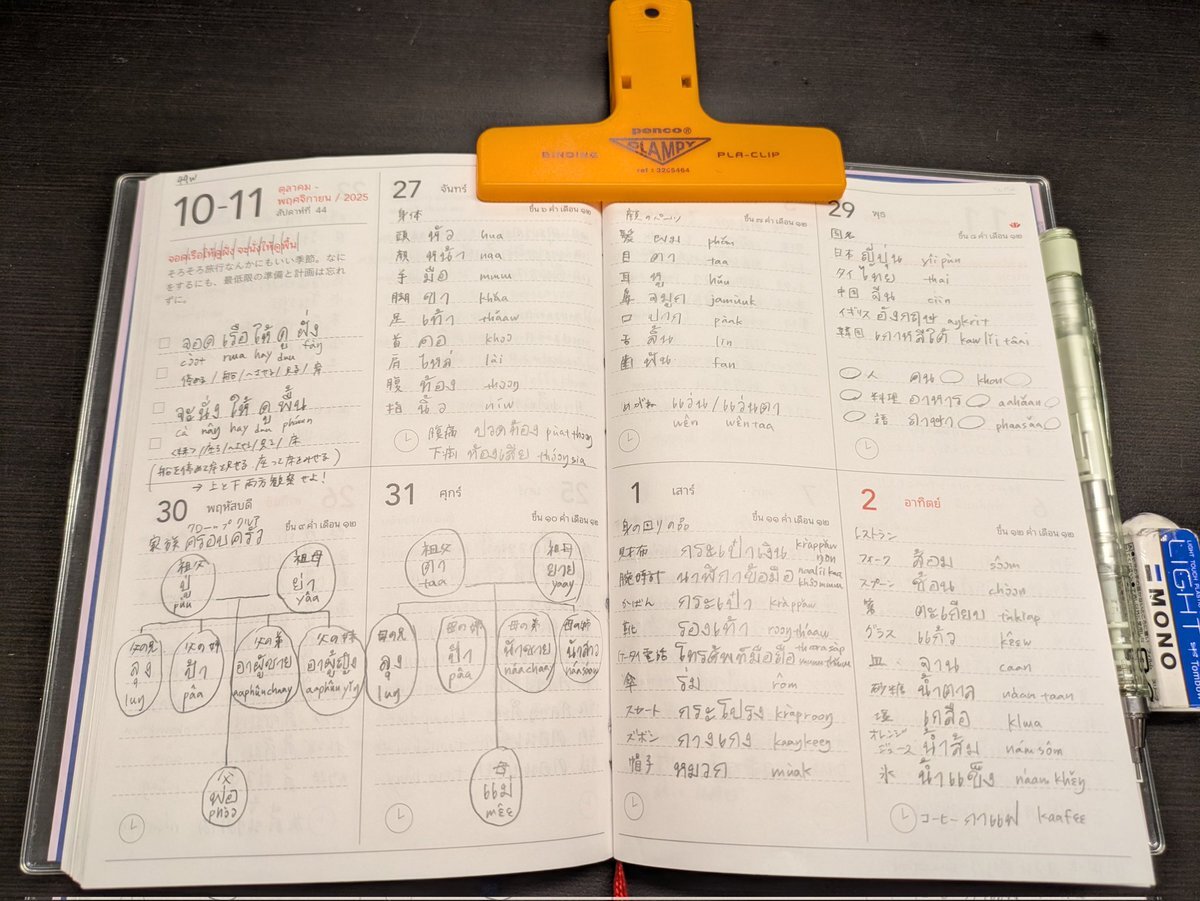 penco®
CLAMPY
BINDING PLA-CLIP
ref : 3205464
44w
10-11
ตุลาคม -
พฤศจิกายน / 2025
สัปดาห์ที่ 44
จอดเรือให้ดูฝั่ง จะนั่งให้ดูพื้น
そろそろ旅行なんかにもいい季節。なに
をするにも、最低限の準備と計画は忘れ
ずに。
จอด เรือ ให้ ดู ฝั่ง
cɔ̀ɔt rɯa hay duu fàŋ
จะ นั่ง ให้ ดู พื้น
cà nâŋ hay duu
→ 上と下 両方観察せよ!
27 จันทร์
ขึ้น ๖ ค่ำ เดือน ๑๒
身体
頭 หัว hua
顔 หน้า naa
手 มือ mɯɯ
脚 ขา khǎa
足 เท้า tháaw
首 คอ khɔɔ
肩 ไหล่ lài
腹 ท้อง thɔɔŋ
指 นิ้ว níw
腹痛 ปวดท้อง pùat thɔɔŋ
下痢 ท้องเสีย thɔ́ɔŋ sia
ขึ้น ๗ ค่ำ เดือน ๑๒
顔のパーツ
髪 ผม phǒm
目 ตา taa
耳 หู hǔu
鼻 จมูก jamùuk
口 ปาก pàak
舌 ลิ้น lin
歯 ฟัน fan
めがね แว่น / แว่นตา
wên wên taa
29 พุธ
ขึ้น ๘ ค่ำ เดือน ๑๒
国名
日本 ญี่ปุ่น yîi pùn
タイ ไทย thai
中国 จีน ciin
イギリス อังกฤษ aŋkrit
韓国 เกาหลีใต้ kawlǐi tâai
人 คน khon
料理 อาหาร aahǎan
語 ภาษา phaasǎa
30 พฤหัสบดี
ขึ้น ๙ ค่ำ เดือน ๑๒
家族 ครอบครัว
祖父
ปู่
pùu
祖母
ย่า
yâa
父の兄
ลุง
luŋ
父の姉
ป้า
pâa
父の弟
อาผู้ชาย
aaphûuchaay
父の妹
อาผู้หญิง
aaphûu yǐŋ
父
พ่อ
phɔ̂ɔ
31 ศุกร์
ขึ้น ๑๐ ค่ำ เดือน ๑๒
祖父
ตา
taa
祖母
ยาย
yaay
母の兄
ลุง
luŋ
母の姉
ป้า
pâa
母の弟
น้าชาย
náachaay
母の妹
น้าสาว
náasǎaw
母
แม่
mɛ̂ɛ
1 เสาร์
ขึ้น ๑๑ ค่ำ เดือน ๑๒
身の回りの品
財布 กระเป๋าเงิน kràpǎw ŋən
腕時計 นาฬิกาข้อมือ naalikaa khɔ̂ɔmɯɯ
かばん กระเป๋า kràpǎw
靴 รองเท้า rɔɔŋ tháaw
ケータイ電話 โทรศัพท์มือถือ thoorasàp mɯɯthɯ̌ɯ
傘 ร่ม rôm
スカート กระโปรง kràprooŋ
ズボン กางเกง kaaŋkeeŋ
帽子 หมวก mùak
2 อาทิตย์
ขึ้น ๑๒ ค่ำ เดือน ๑๒
レストラン
フォーク ส้อม sɔ̂ɔm
スプーン ช้อน chɔ́ɔn
箸 ตะเกียบ tàkìap
グラス แก้ว kɛ̂ɛw
皿 จาน caan
砂糖 น้ำตาล náan taan
塩 เกลือ klɯa
オレンジジュース น้ำส้ม nám sôm
氷 น้ำแข็ง náam khɛ̌ŋ
コーヒー กาแฟ kaafɛɛ
MONO
LIGHT
Tombow